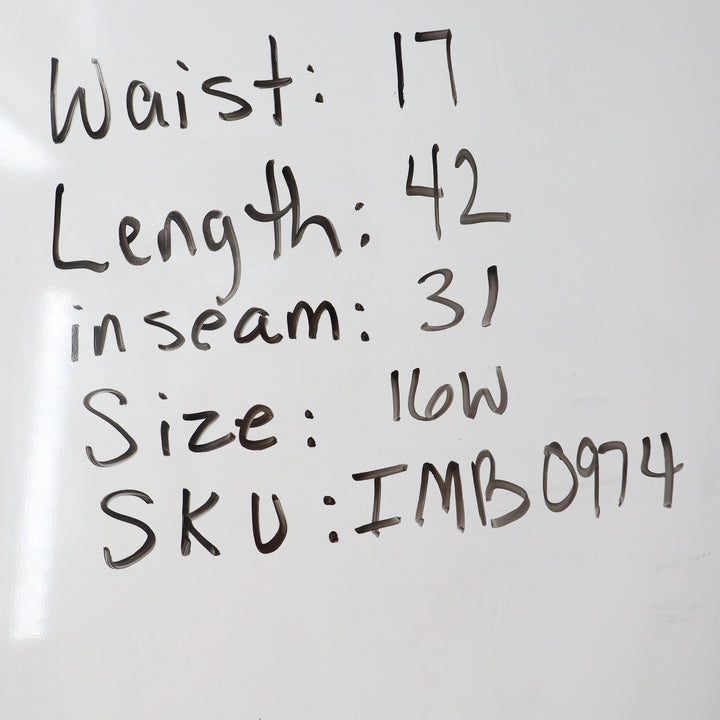 Waist: 17
Length: 42
inseam: 31
Size: 16W
SKU: IMB0974